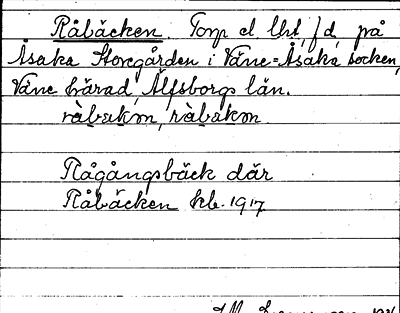 Råbäcken. Torp el. lht, fd, på
Åsaka Storegården i Väne-Åsaka socken,
Väne härad, Älfsborgs län.
Rågångsbäck där
Råbäcken kb. 1917